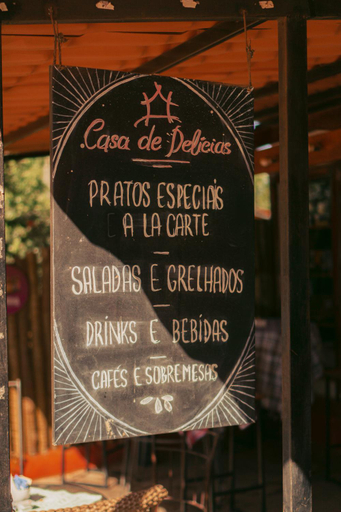 Casa de Delícias
PRATOS ESPECIAIS
A LA CARTE
SALADAS E GRELHADOS
DRINKS E BEBIDAS
CAFÉS E SOBREMESAS